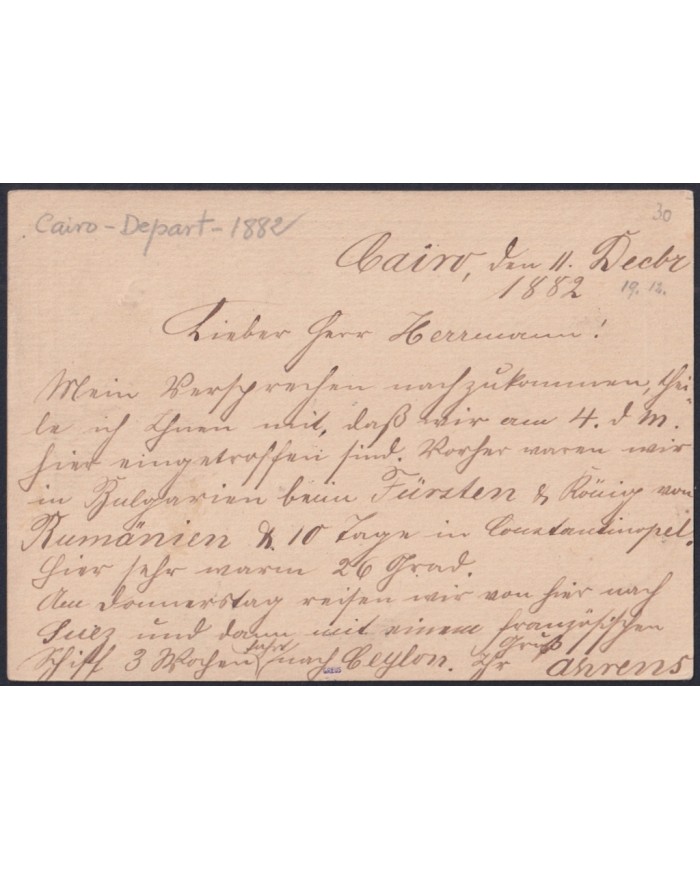 30
Cairo - Depart - 1882
Cairo, den 11. Decbr
1882
19. 12.
Lieber Herr Herrmann!
Mein Versprechen nachzukommen, thei-
le ich Ihnen mit, daß wir am 4. d M.
hier eingetroffen sind. Vorher waren wir
in Bulgarien beim Fürsten & König von
Rumänien & 10 Tage in Constantinopel.
Hier sehr warm 26 Grad.
Am Donnerstag reisen wir von hier nach
Suez und dann mit einem französischen
Schiff 3 Wochen Fahrt nach Ceylon. Gruß
Ihr Ahrens